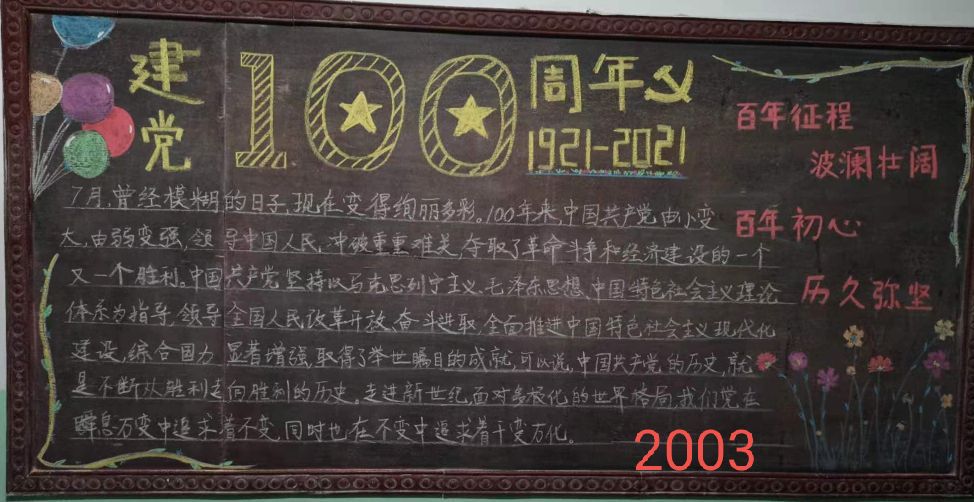 建党100周年
1921-2021
百年征程
波澜壮阔
百年初心
历久弥坚
7月,曾经模糊的日子,现在变得绚丽多彩。100年来,中国共产党由小变
大,由弱变强,领导中国人民,冲破重重难关,夺取了革命斗争和经济建设的一个
又一个胜利。中国共产党坚持以马克思列宁主义、毛泽东思想、中国特色社会主义理论
体系为指导,领导全国人民改革开放,奋斗进取,全面推进中国特色社会主义现代化
建设,综合国力显著增强,取得了举世瞩目的成就,可以说,中国共产党的历史,就
是不断从胜利走向胜利的历史。走进新世纪,面对多极化的世界格局,我们党在
瞬息万变中追求着不变,同时也在不变中追求着千变万化。
2003